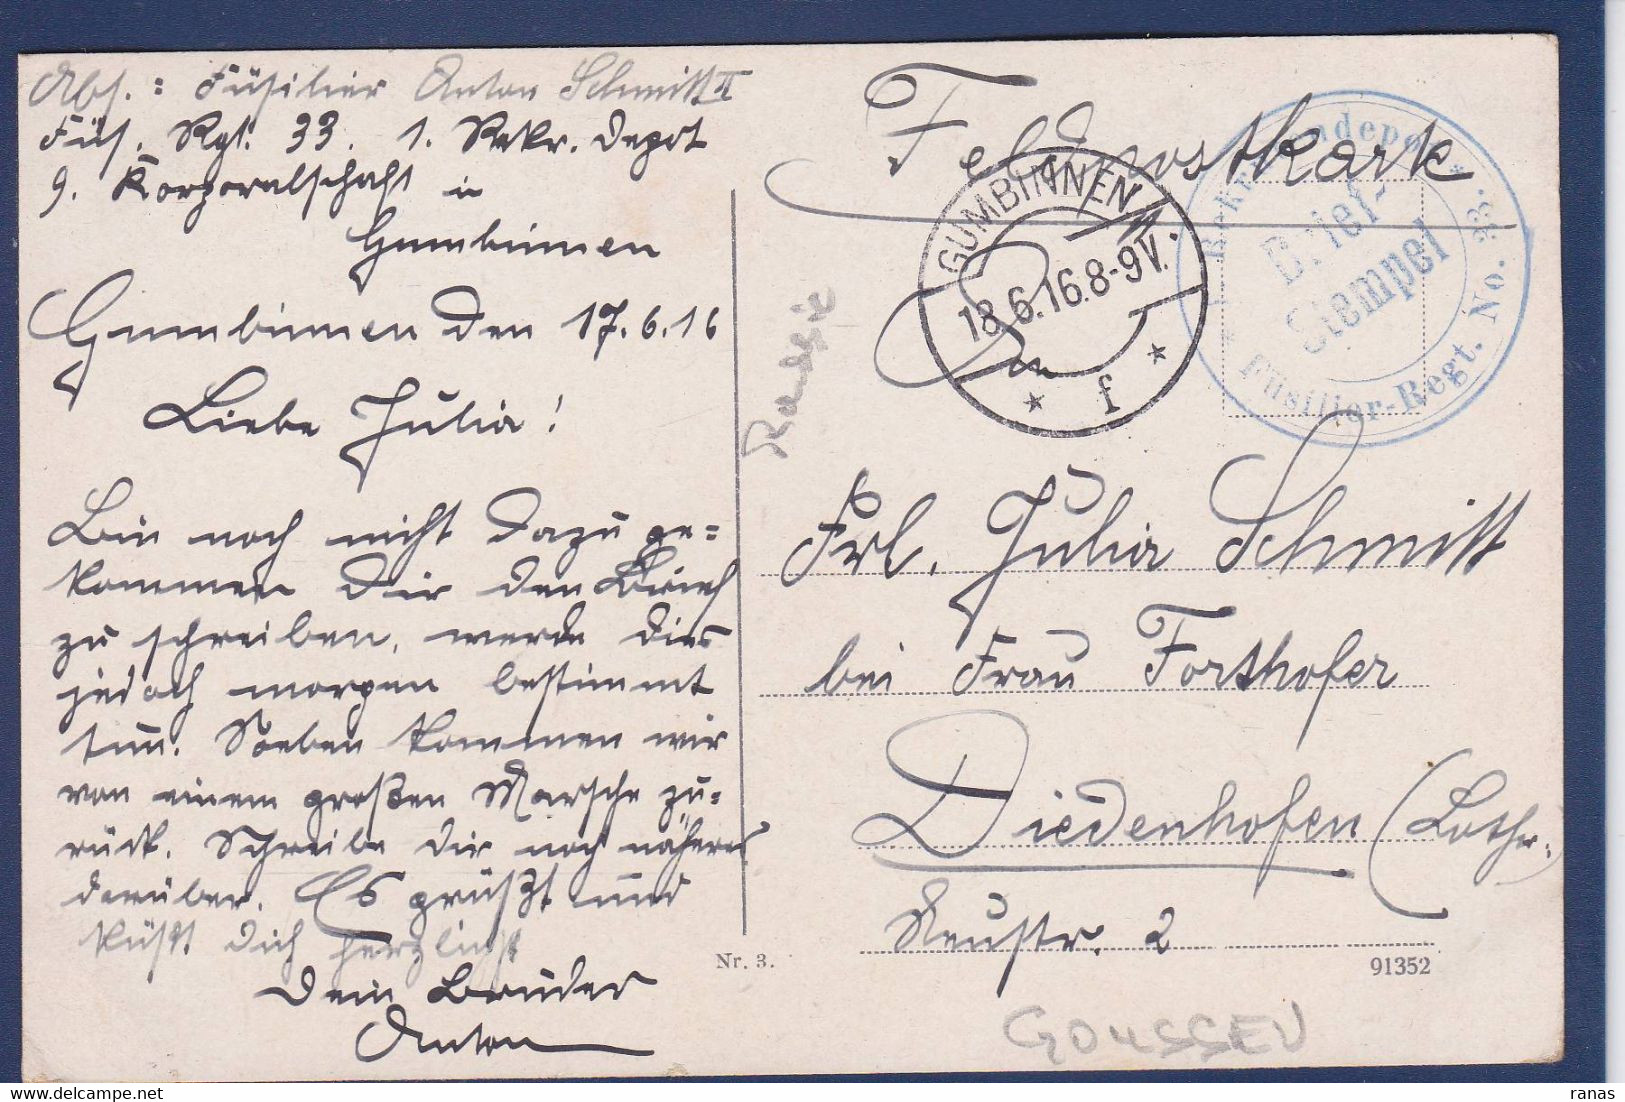 Abs.: Füsilier Anton Schmitt II
Füs. Rgt. 33. 1. Rekr. Depot
9. Korporalschaft in
Gumbinnen
Gumbinnen den 17.6.16
Liebe Julia!
Bin noch nicht dazu ge=
kommen Dir den Brief
zu schreiben, werde dies
jedoch morgen bestimmt
tun. Soeben kommen wir
von einem großen Marsche zu=
rück. Schreibe Dir noch näheres
darüber. Es grüßt und
küßt Dich herzlichst
Dein Bruder
Anton
Feldpostkarte
GUMBINNEN
18.6.16.8-9V.
* f *
Rekrutendepot
Füsilier-Regt. No. 33.
Brief-
Stempel
Frl. Julia Schmitt
bei Frau Forthofer
Diedenhofen (Lothr.)
Neustr. 2
Nr. 3.
91352
GOUSSEV
delcampe.net
ranas